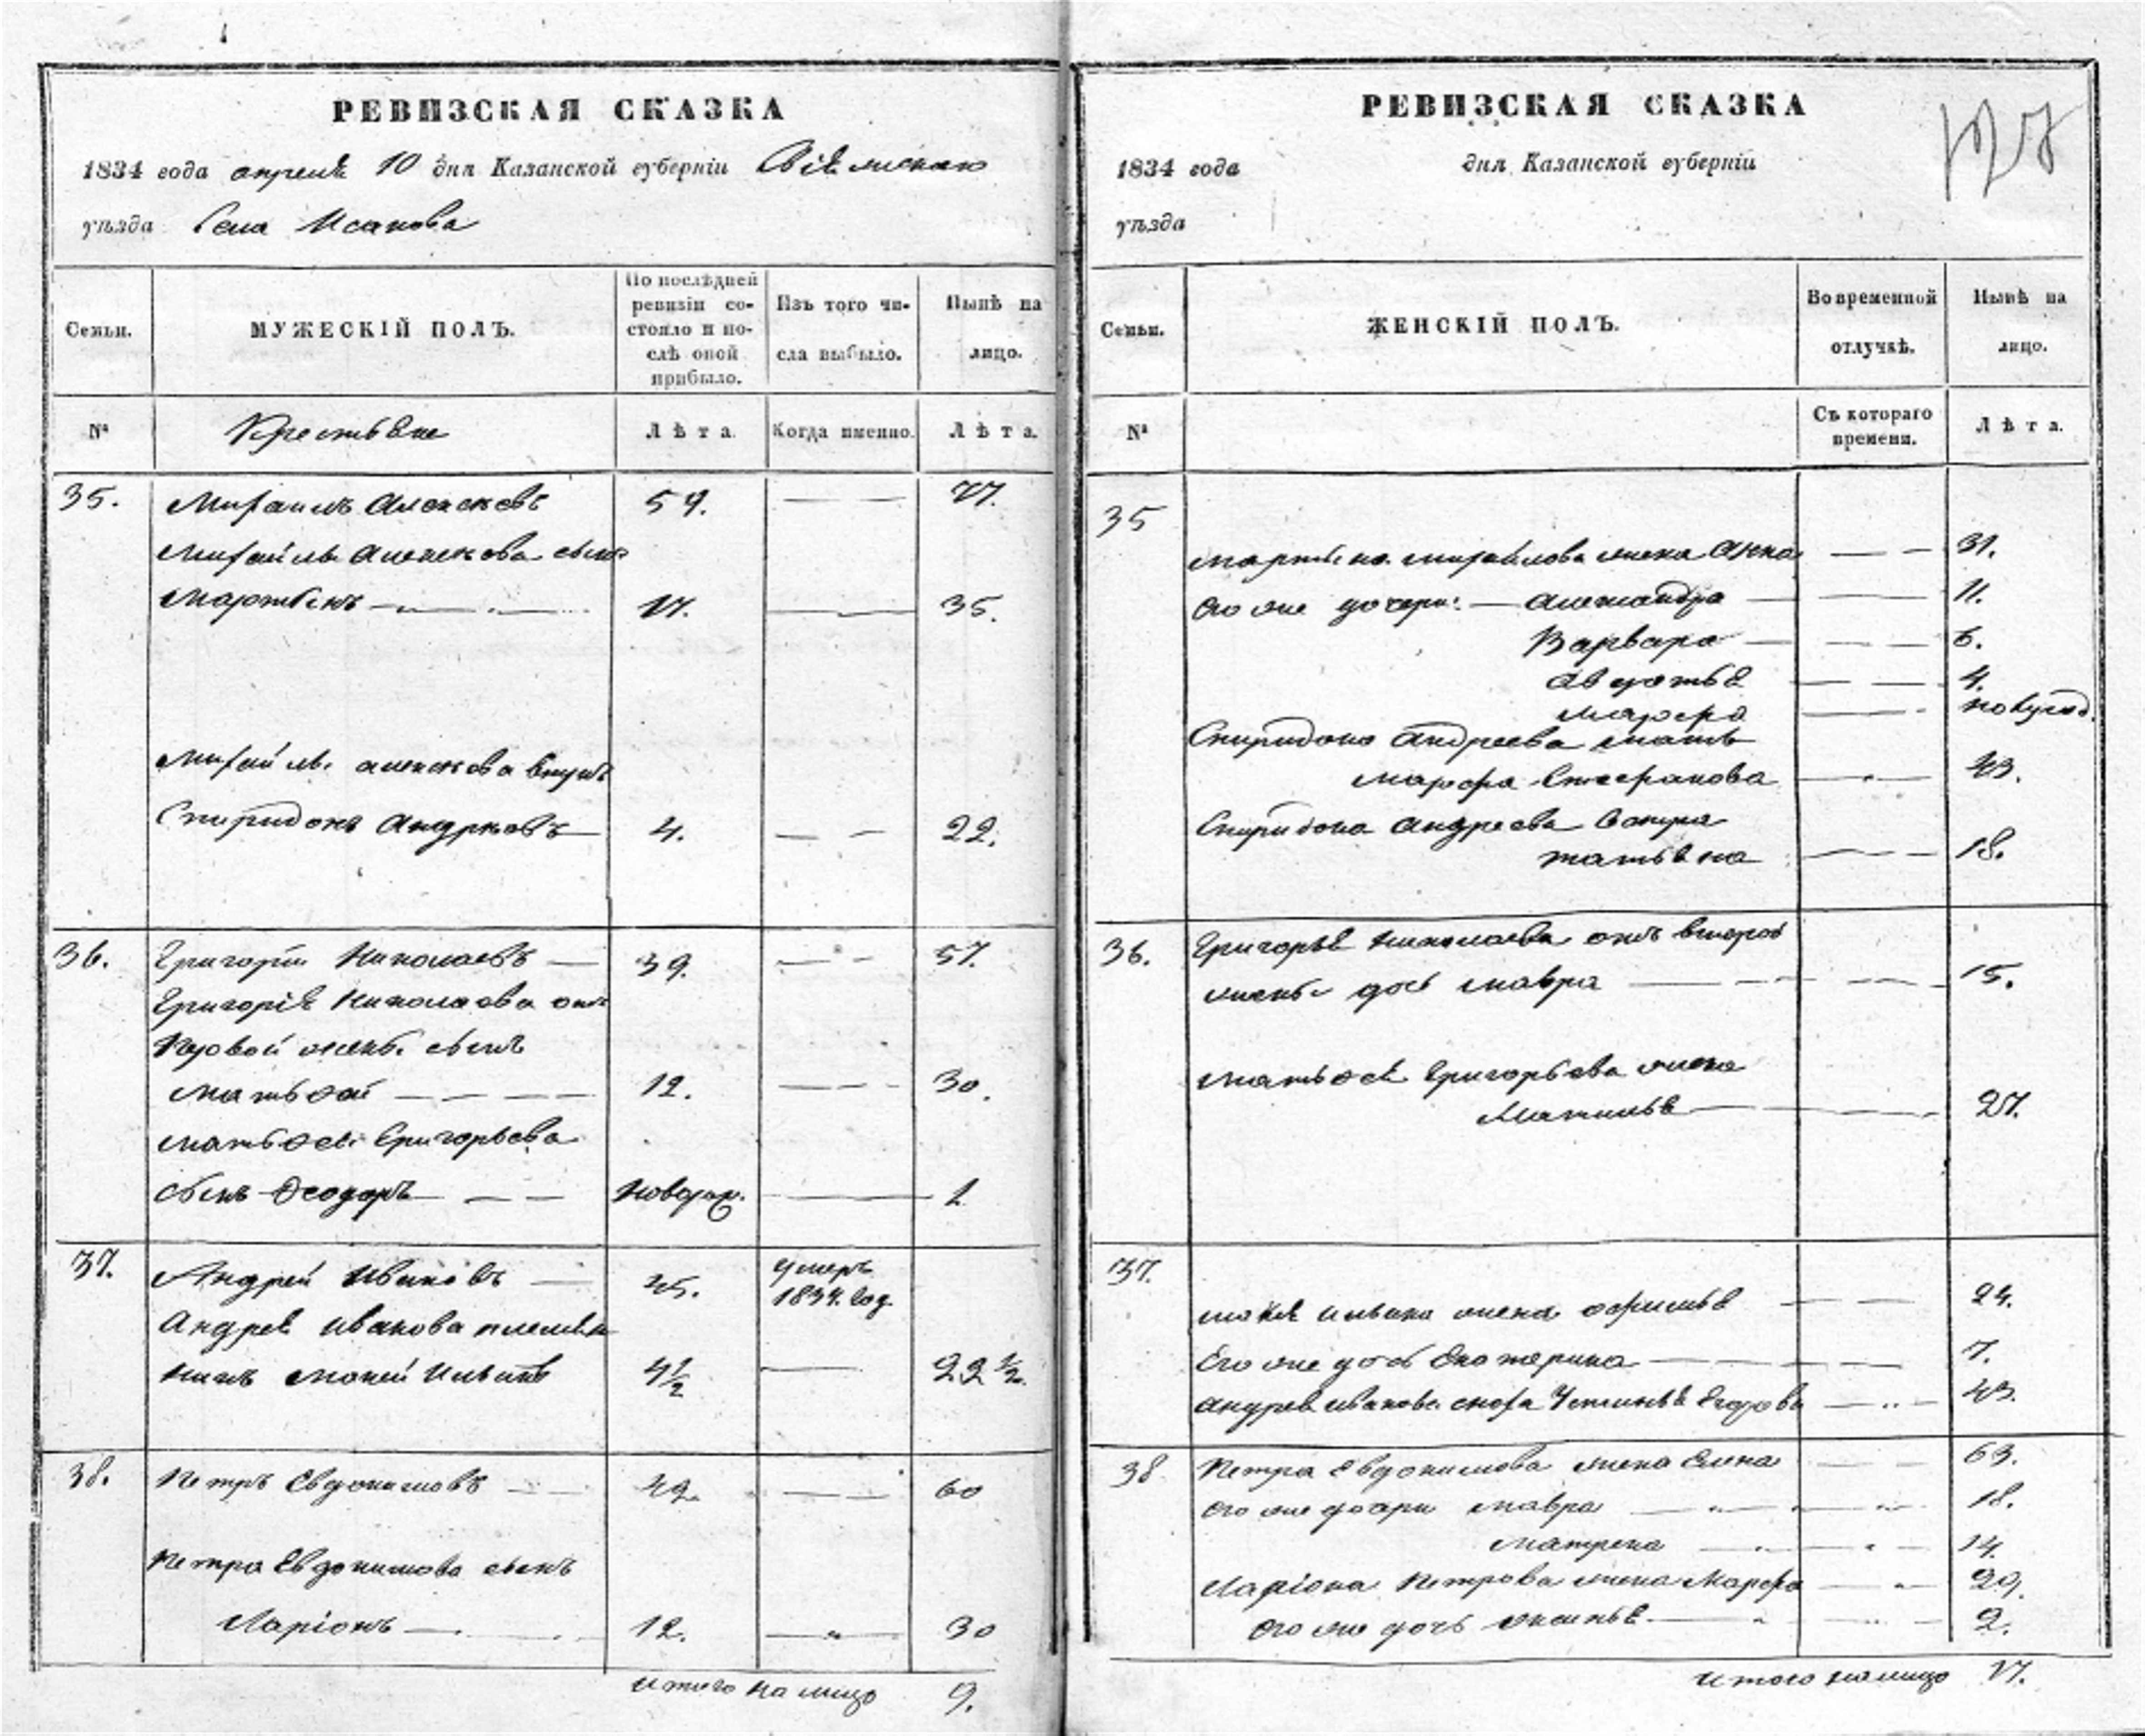 РЕВИЗСКАЯ СКАЗКА
1834 года апреля 10 дня Казанской губерніи
уѣзда Села Исакова
Семьи. МУЖЕСКІЙ ПОЛЪ. По послѣдней ревизіи состояло и послѣ оной прибыло. Изъ того числа выбыло. Нынѣ на лицо.
№ Крестьяне Лѣта. Когда именно. Лѣта.
35. Михаилъ Алексеевъ 59. — — 77.
Михайлы Алексеева сынъ
Мартынъ 17. — 35.
Михайлы Алексеева внукъ
Спиридонъ Андреевъ 4. — — 22.
36. Григорій Николаевъ — 39. — — 57.
Григорія Николаева отъ
первой жены сынъ
Матвѳей — — — — 12. — — — 30.
Матвѳея Григорьева
сынъ Ѳеодоръ — — — новорож. — 1
37. Андрей Ивановъ — 45. умеръ 1834. год.
Андрея Иванова племян
никъ Мокей Ильинъ 4½ — 22½.
38. Петръ Евдокимовъ 42. — — 60
Петра Евдокимова сынъ
Ларіонъ — 12. — 30
Итого на лицо 9.
РЕВИЗСКАЯ СКАЗКА
127
1834 года дня Казанской губерніи
уѣзда
Семьи. ЖЕНСКІЙ ПОЛЪ. Во временной отлучкѣ. Нынѣ на лицо.
№ Съ котораго времени. Лѣта.
35
Мартына Михайлова жена Анна — — 31.
Его же дочери: — Александра — — — 11.
Варвара — — — 6.
Авдотья — — 4.
Марфа —
Спиридона Андреева мать
Марфа Степанова — 43.
Спиридона Андреева
Татьяна — — 18.
36. Григорья Николаева отъ второй
жены дочь Мавра — — — 15.
Матвѳея Григорьева жена
— — 27.
37.
Мокея Ильина жена Офимья — — 24.
Его же дочь Екатерина — — — 7.
Андрея Иванова сноха Устинья Егорова — 43.
38 Петра Евдокимова жена Елена — — 63.
Его же дочери Мавра — — 18.
Матрена — — 14.
Ларіона Петрова жена Марфа — 29.
Его же дочь Аксинья — 2.
Итого на лицо 17.